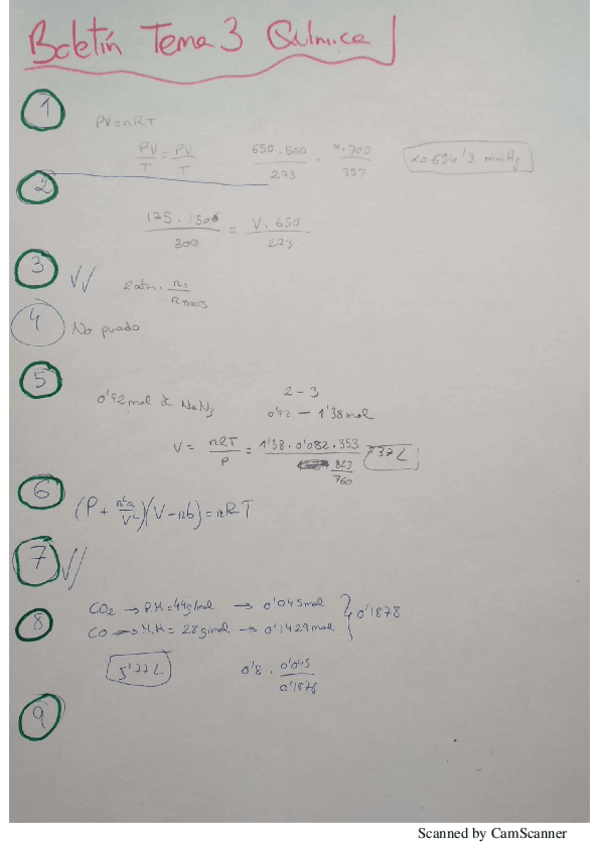 Boletín Tema 3 Química
1
PV=nRT
PV/T = PV/T 650.500/273 . x.700/337 x=694'3 mmHg
2
175.1500/300 = V.650/273
3
2 atm.
4 No puedo
5
0'92 mol NaN3 2-3
0'92 - 1'38 mol
V = nRT/P = 1'38.0'082.353/(823/760)
6
(P + n²a/V²)(V-nb)=nRT
7
8
CO2 → P.M=44g/mol → 0'045mol
CO → M.M= 28g/mol → 0'1429mol } 0'1878
5'77L 0'8 . 0'045/0'1878
9
Scanned by CamScanner